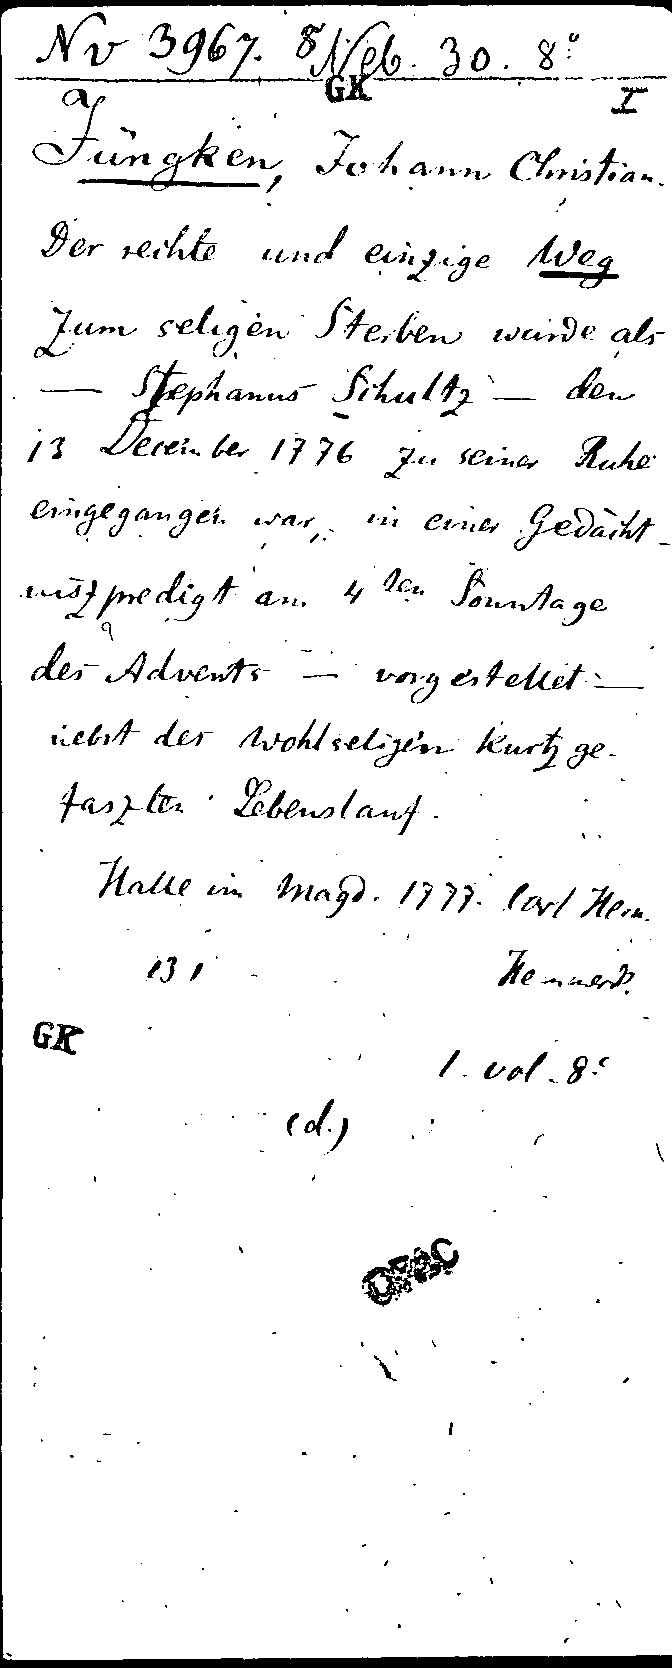 Nv 3967. 8 Neb. 30. 8°
GK
I
Jüngken, Johann Christian.
Der rechte und einzige Weg
zum seligen Sterben wurde als
— Stephanus Schultz — den
13 December 1776 zu seiner Ruhe
eingegangen war, in einer Gedächt-
niszpredigt am 4ten Sonntage
des Advents — vorgestellet —
nebst des Wohlseligen kurtz ge-
faszten Lebenslauf.
Halle im Magd. 1777. Carl Herm.
131 Hemmerde.
GK
1. vol. 8°
(d.)
OPAC